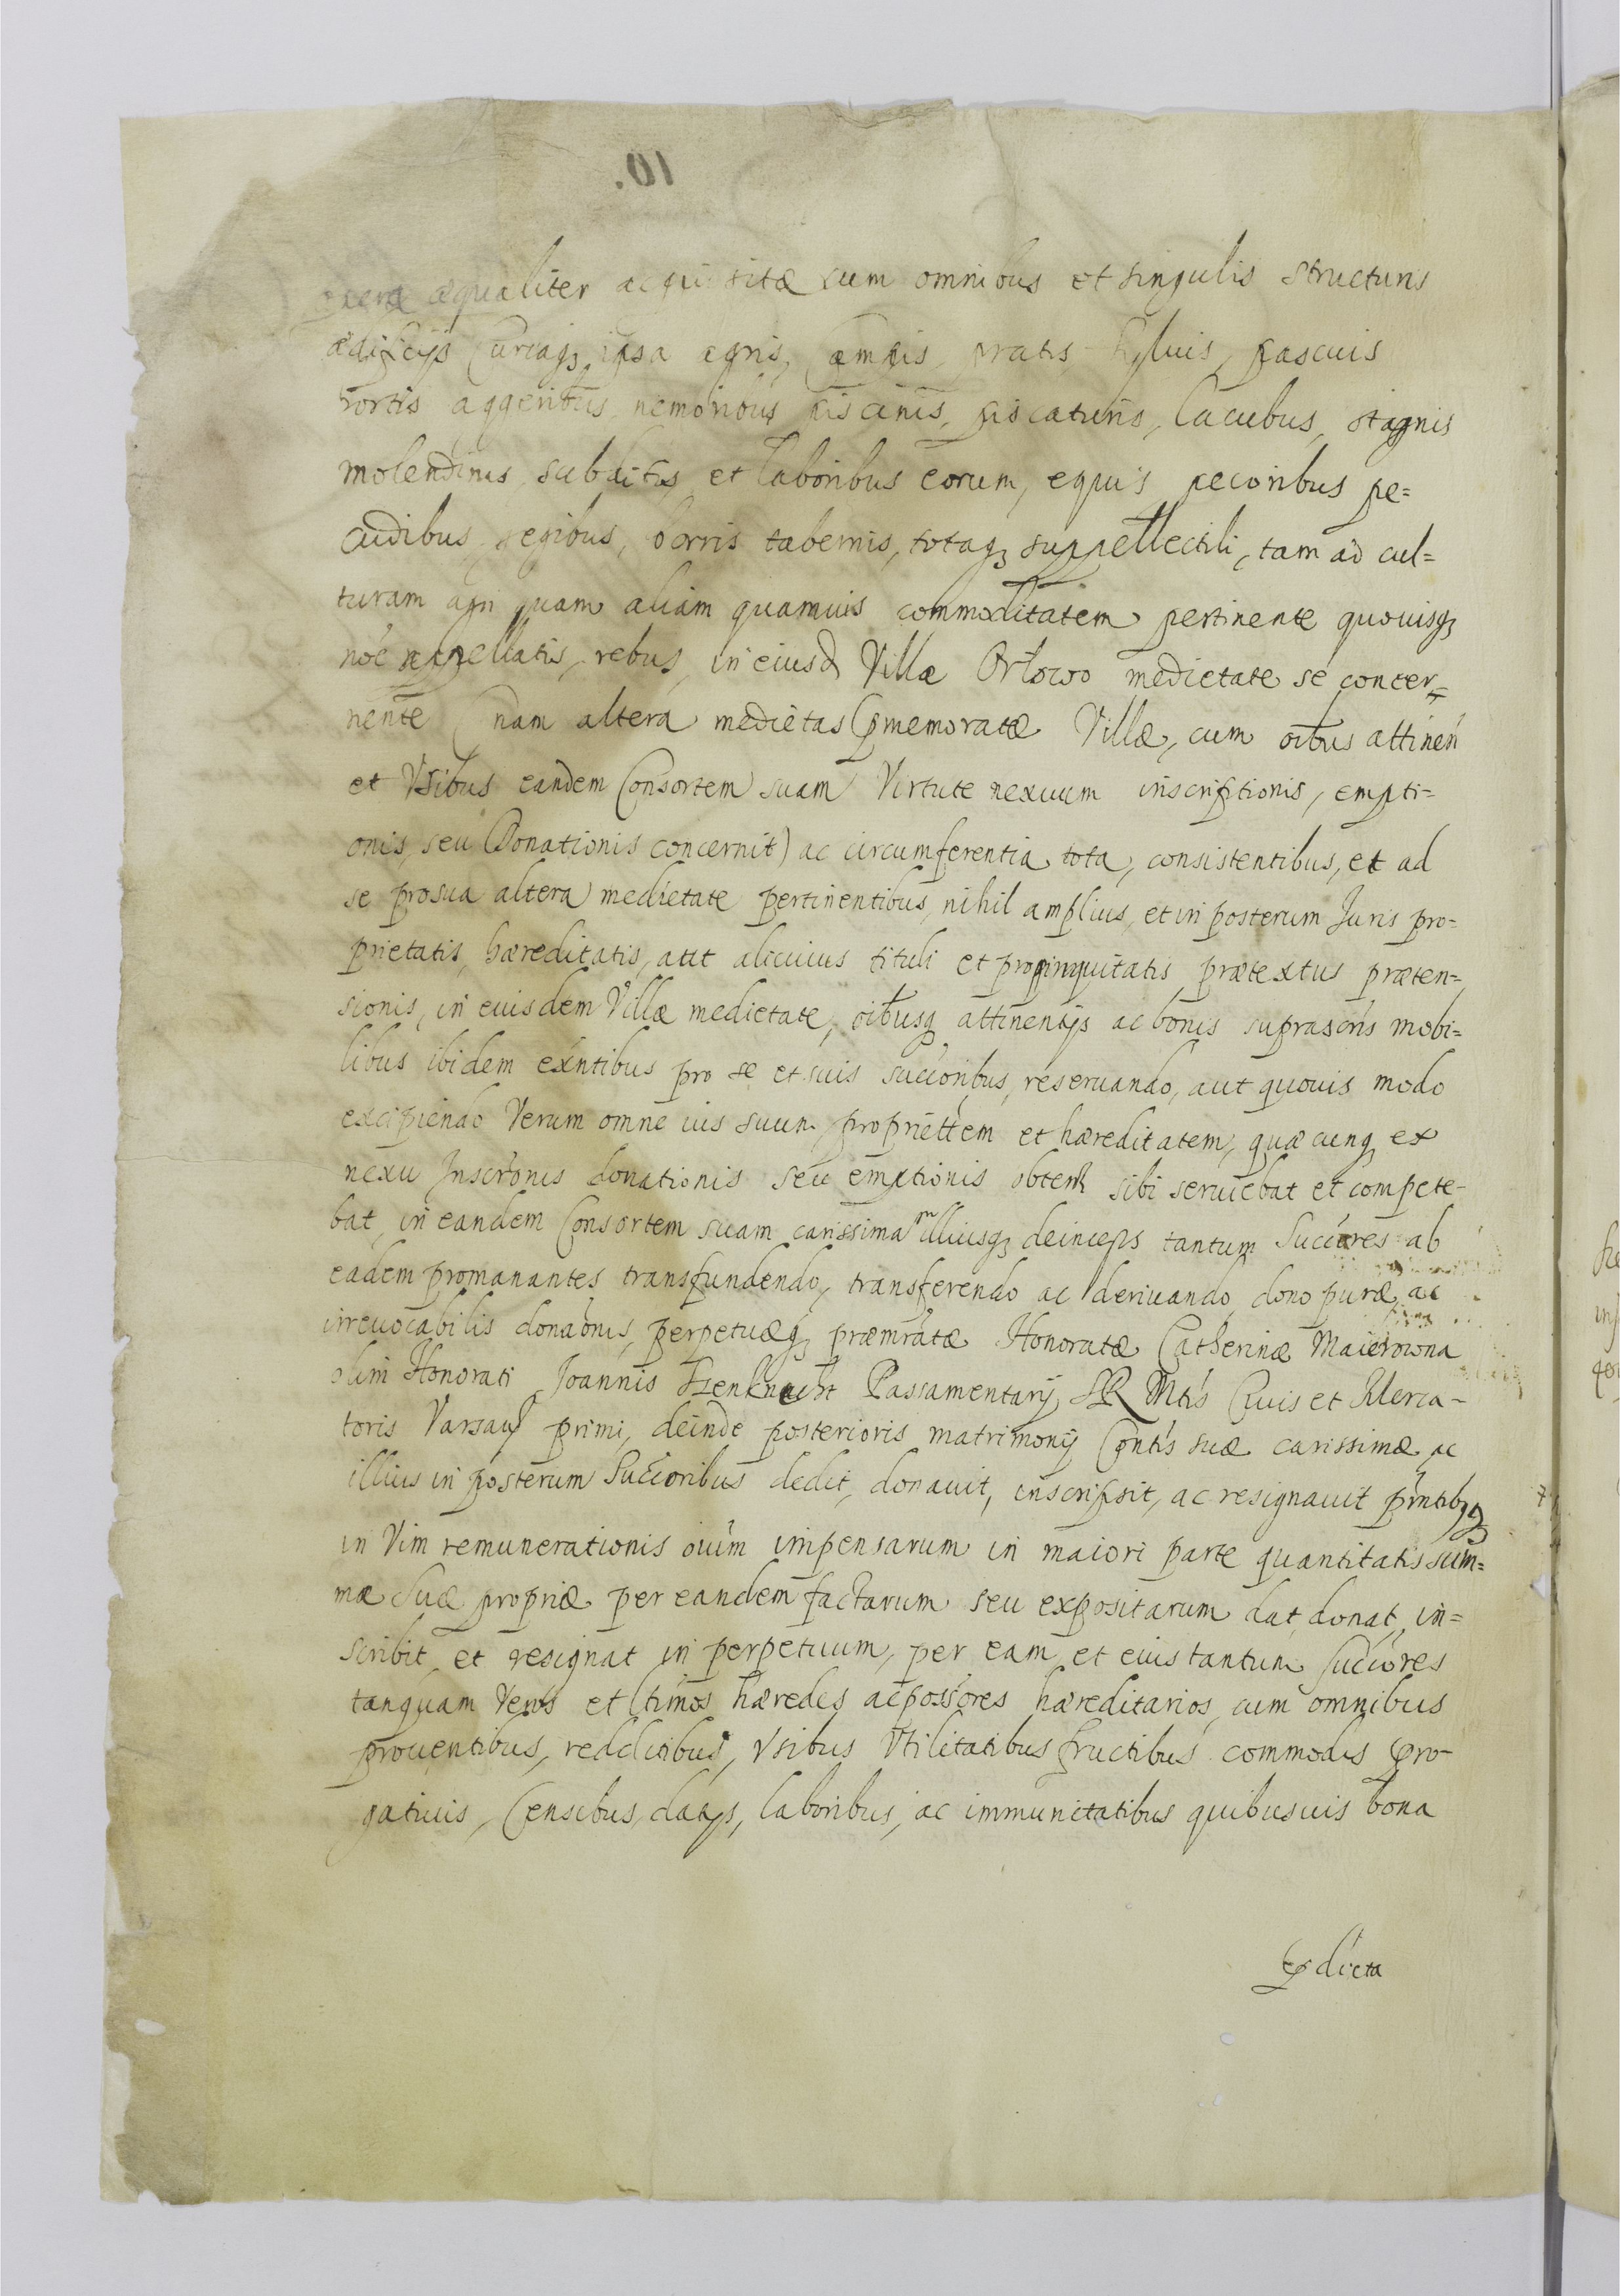 10.
opera æqualiter acquisitæ cum omnibus et singulis structuris
ædificijs Curiaqꝫ ipsa agris, Campis, pratis Syluis, pascuis
hortis aggeribus nemoribus piscinis, piscaturis, lacubus, stagnis
molendinis, subditis, et laboribus eorum, equis pecoribus pe=
cudibus, segibus, horris tabernis, totaqꝫ suppellectili, tam ad cul=
turam agri quam aliam quamuis commoditatem pertinente quouisqꝫ
noĕ appellatis, rebus, in eiusd Villæ Orłowo medietate se concer=
nente (nam altera medietas pmemoratæ Villæ, cum oĩbus attinen
et Vsibus eandem Consortem suam Virtute nexuum inscriptionis, empti=
onis, seu Donationis concernit) ac circumferentia tota, consistentibus, et ad
se pro sua altera medietate pertinentibus, nihil amplius, et in posterum Juris pro=
prietatis, hæreditatis, aut alicuius tituli et propinquitatis prætextus præten=
sionis, in euisdem Villæ medietate, oĩbusqꝫ attinentijs ac bonis suprascris mobi=
libus ibidem exntibus pro se et suis succoribus, reseruando, aut quouis modo
excipiendo Verum omne ius suum, propriettem et hæreditatem, quæcunqꝫ ex
nexu Inscronis donationis seu emptionis obtent sibi seruiebat et compete-
bat, in eandem Consortem suam carissimam illiusqꝫ deinceps tantum Succores ab
eadem promanantes transfundendo, transferendo ac deriuando dono puræ ac
irreuocabilis donaõnis, perpetuæqꝫ præmratæ Honoratæ Catherinæ Maierowna
olim Honorati Joannis Henknecht Passamentarij SR Mtis Ciuis et Merca-
toris Varsauȝ primi, deinde posterioris matrimonij Contis suæ carissimæ ac
illius in posterum Succoribus dedit, donauit, inscripsit, ac resignauit pñtibqꝫ
in Vim remunerationis oium impensarum in maiori parte quantitatis sum=
mæ suæ propriæ per eandem factarum seu expositarum dat, donat, in=
scribit et resignat in perpetuum, per eam et euis tantum succores
tanquam Veros et ltimos hæredes ac possores hæreditarios, cum omnibus
prouentibus, redditibus, Vsibus Vtilitatibus fructibus commodis pro-
gatiuis, Censibus, datijs, laboribus, ac immunitatibus quibusuis bona
pdicta